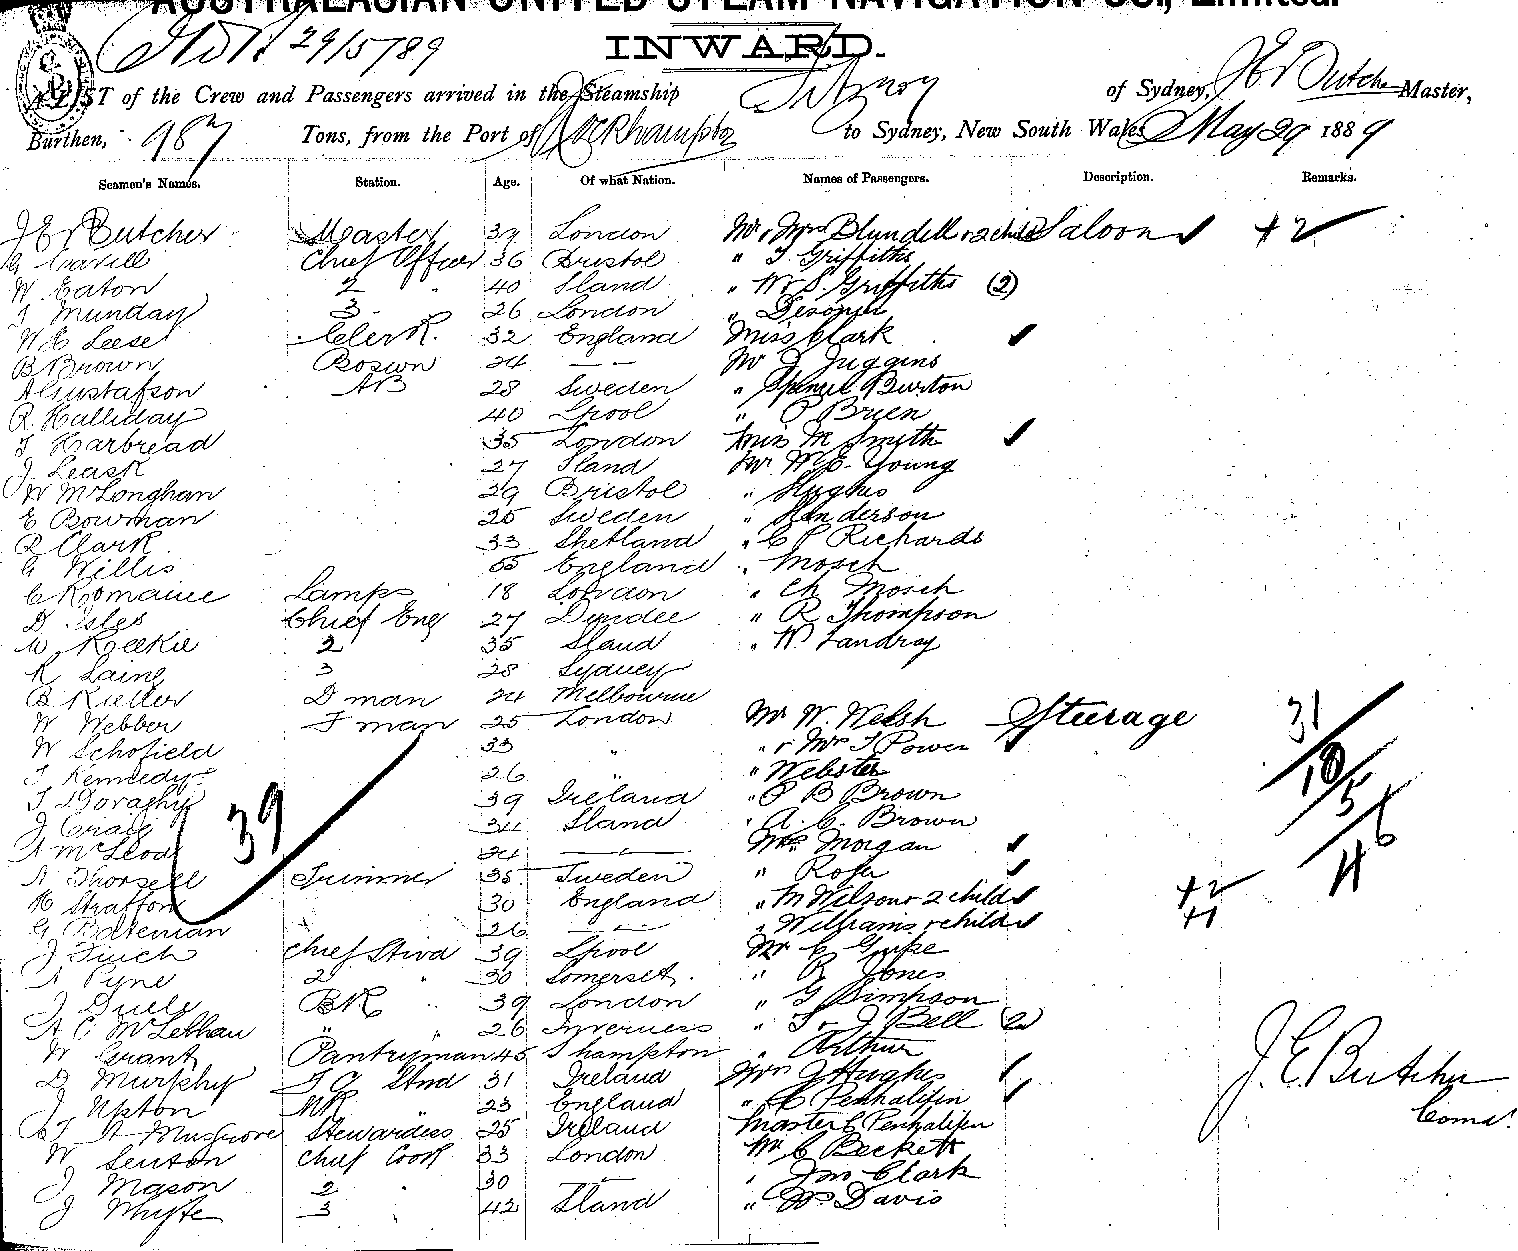 AUSTRALASIAN UNITED STEAM NAVIGATION CO., Limited.
29/5/89
INWARD.
A LIST of the Crew and Passengers arrived in the Steamship Fitzroy of Sydney, J E Butcher Master,
Burthen, 987 Tons, from the Port of Rockhampton to Sydney, New South Wales May 29 1889
Seamen's Names. Station. Age. Of what Nation. Names of Passengers. Description. Remarks.
J E Butcher Master 39 London Mr & Mrs Blundell & 2 child Saloon +2
G Cavill Chief Officer 36 Bristol " T Griffiths
W Eaton 2 " 40 Sland " W S. Griffiths (2)
T Munday 3 " 26 London "
W E Leese Clerk. 32 England Miss Clark
B Brown Bosun 24 — — Mr J Juggins
A Gustafson AB 28 Sweden " Burton
R Halliday 40 Lpool " P Brien
T Harbread 35 London Miss M Smith
J Leask 27 Sland Mr W E. Young
W McLonghan 29 Bristol " Hughes
E Bowman 25 Sweden " Henderson
R Clark 33 Shetland " C P Richards
G Willis 55 England " Mosch
C Romaine Lamps 18 London " Ch Mosch
D Isles Chief Eng 27 Dundee " R Thompson
W Reekie 2 35 Sland " W Landray
R Laing 3 28 Sydney
B Kieller D man 24 Melbourne
W Webber F man 25 London Mr W. Welsh Steerage 31
W Schofield 33 " " & Mrs T Power
T Kennedy 26 " Webster 18
T Doraghy 39 Ireland " P B Brown 5
J Craig 34 Sland " A. C. Brown
A McLeod 39 24 — Mrs Morgan 46
A Thorsell Trimmer 35 Sweden " Rofe
H Strafford 30 England " M Wilson & 2 child +2
G Bateman 26 — — " Williams & child +1
J Finch Chief Stwd 39 Lpool Mr C
A Pyne 2 " 30 Somerset. " R Jones
J BK 39 London " G Simpson
A C McLebhau " " 26 Inverness " T & J Bell (2)
W Grant Pantryman 45 Shampton " Arthur
D Murphy F C Stwd 31 Ireland Mrs J Hughes
J Upton MR " 23 England " C Penhalifen J. E. Butcher
A Musgrove Stewardess 25 Ireland Master C Penhalifen Comd.
W Senton Chief Cook 33 London Mr C Beckett
J Mason 2 " 30 — " Jno Clark
J Whyte 3 " 42 Sland " W Davis